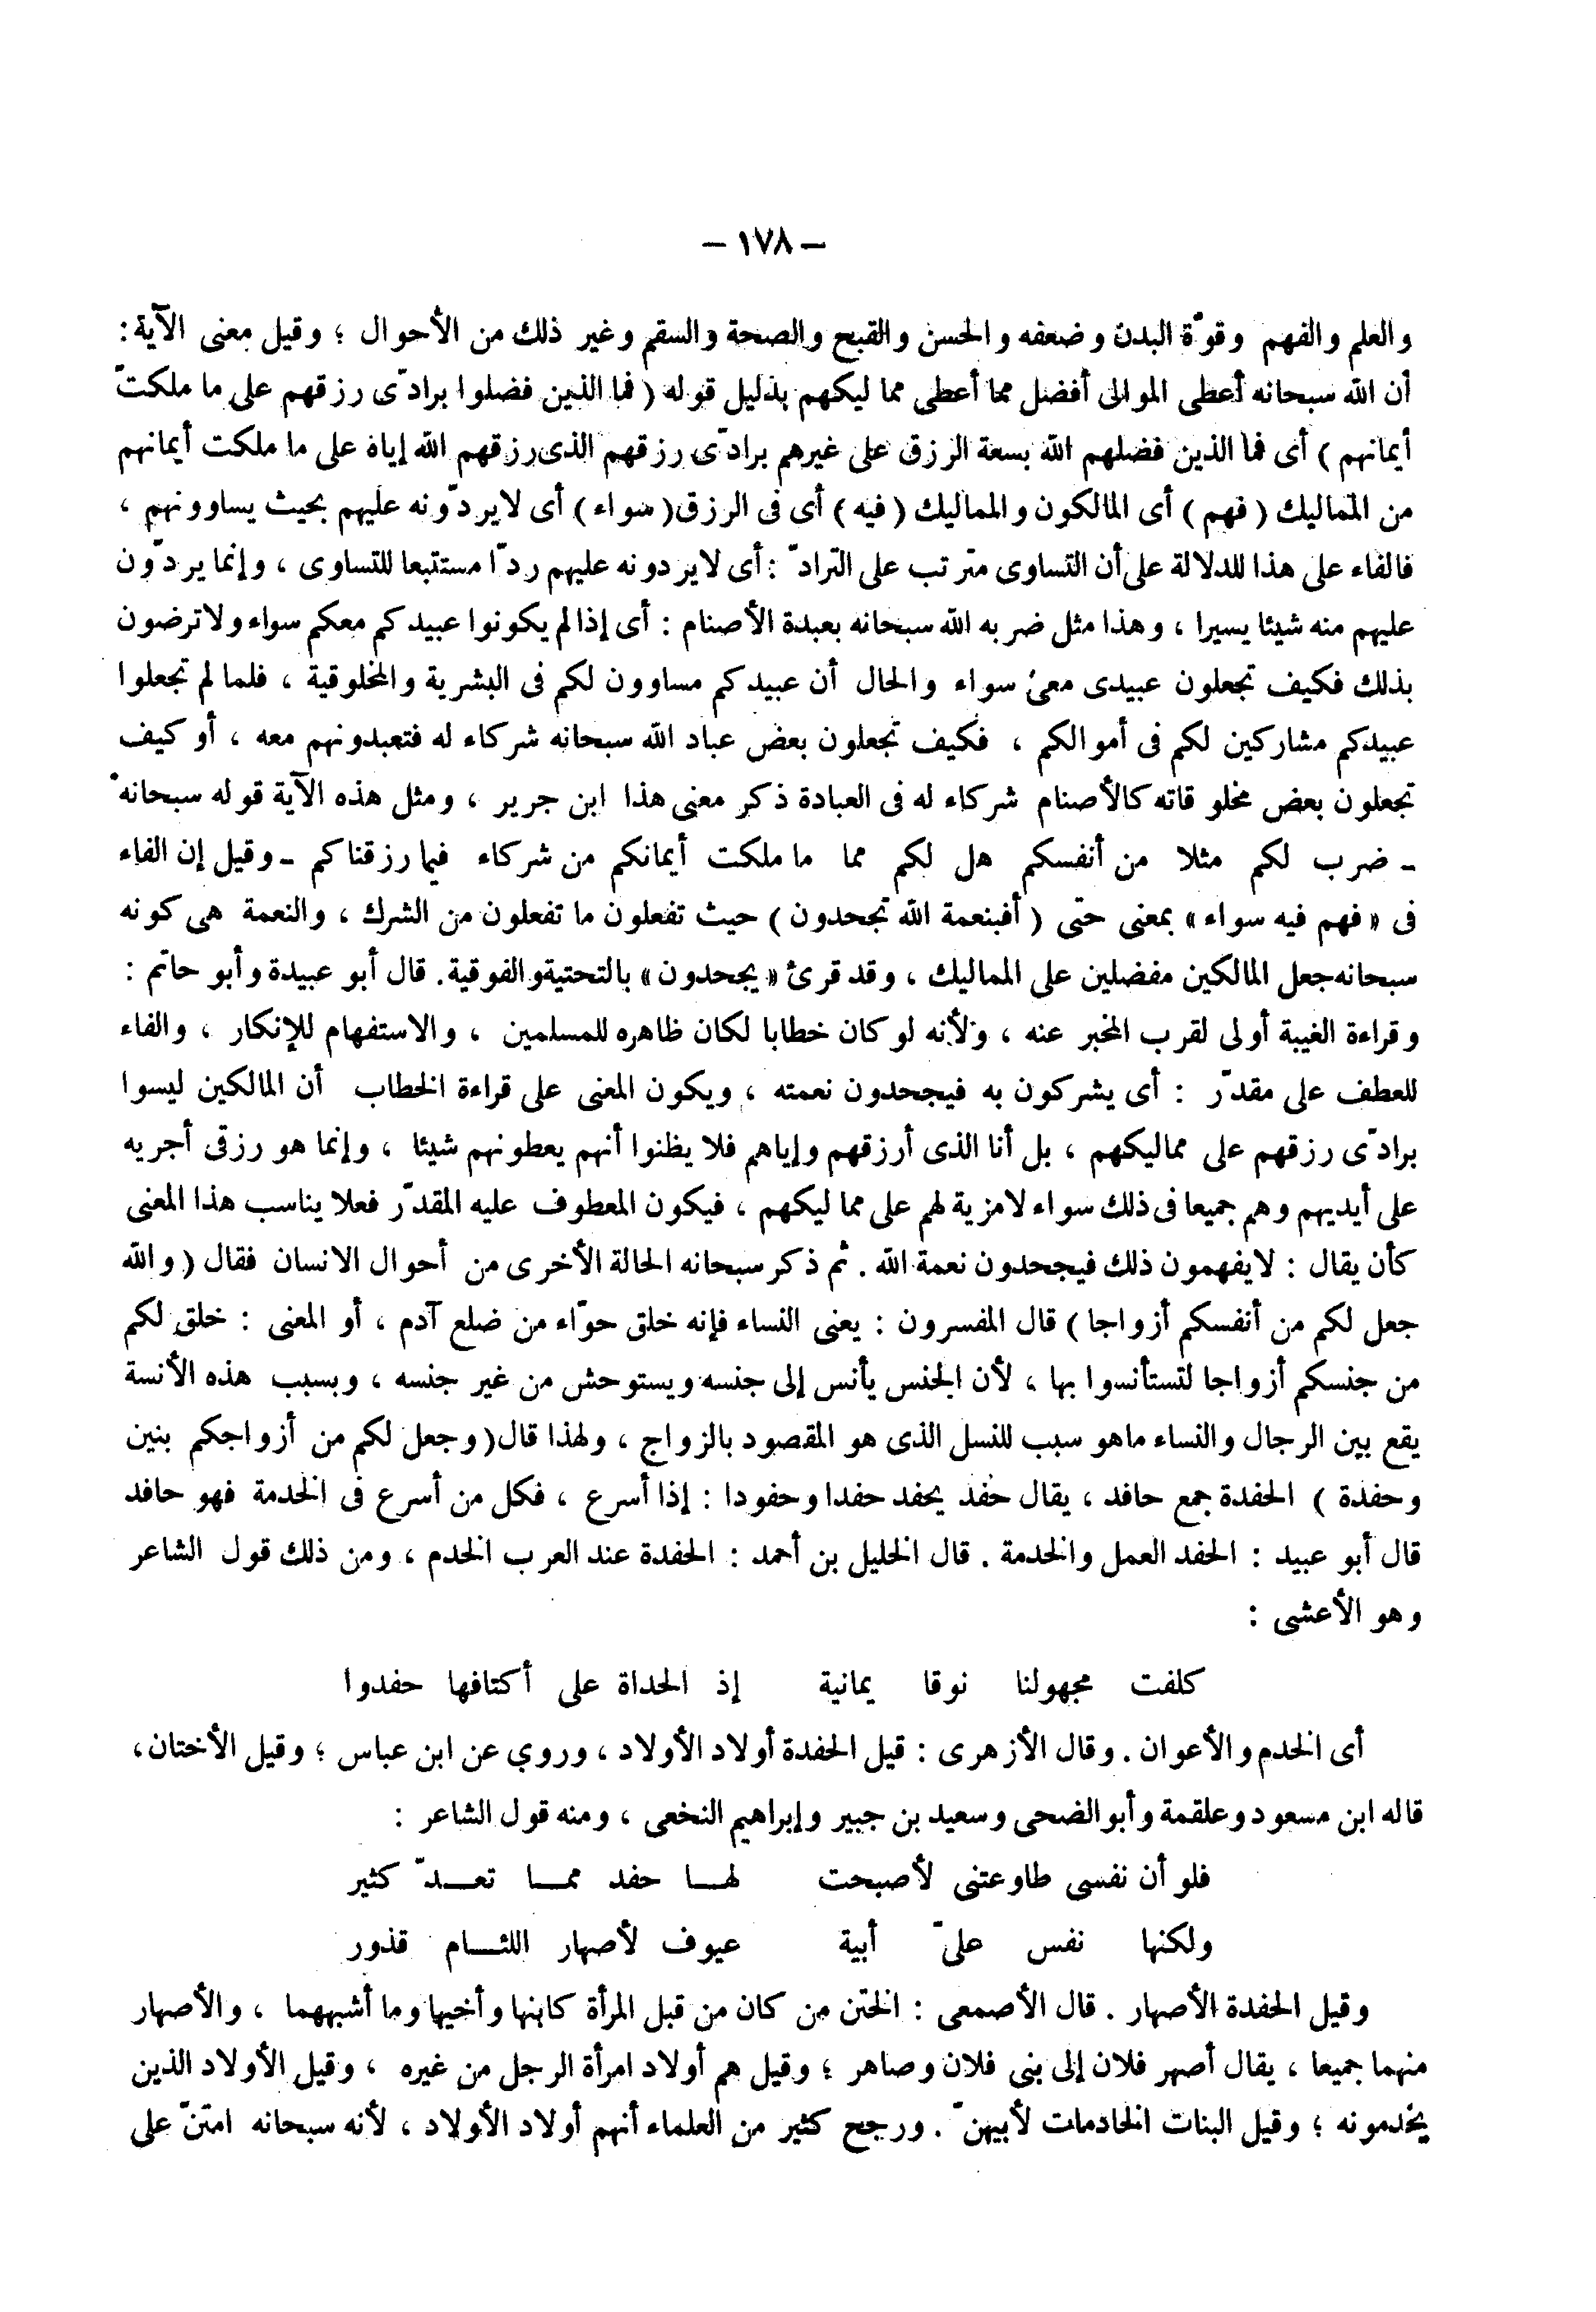 – ١٧٨ –
والعلم والفهم وقوّة البدن وضعفه والحسن والقبح والصحة والسقم وغير ذلك من الأحوال ؛ وقيل معنى الآية :
أن الله سبحانه أعطى الموالى أفضل مما أعطى مماليكهم بدليل قوله ( فما الذين فضلوا برادّى رزقهم على ما ملكت
أيمانهم ) أى فما الذين فضلهم الله بسعة الرزق على غيرهم برادّى رزقهم الذى رزقهم الله إياه على ما ملكت أيمانهم
من المماليك ( فهم ) أى المالكون والمماليك ( فيه ) أى فى الرزق ( سواء ) أى لا يردّونه عليهم بحيث يساوونهم ،
فالفاء على هذا للدلالة على أن التساوى مترتب على الترادّ : أى لا يردونه عليهم ردّا مستتبعا للتساوى ، وإنما يردّون
عليهم منه شيئا يسيرا ، وهذا مثل ضربه الله سبحانه بعبدة الأصنام : أى إذا لم يكونوا عبيدكم معكم سواء ولا ترضون
بذلك فكيف تجعلون عبيدى معى سواء والحال أن عبيدكم مساوون لكم فى البشرية والمخلوقية ، فلما لم تجعلوا
عبيدكم مشاركين لكم فى أموالكم ، فكيف تجعلون بعض عباد الله سبحانه شركاء له فتعبدونهم معه ، أو كيف
تجعلون بعض مخلوقاته كالأصنام شركاء له فى العبادة ذكر معنى هذا ابن جرير ، ومثل هذه الآية قوله سبحانه
- ضرب لكم مثلا من أنفسكم هل لكم مما ما ملكت أيمانكم من شركاء فيما رزقناكم - وقيل إن الفاء
فى « فهم فيه سواء » بمعنى حتى ( أفبنعمة الله تجحدون ) حيث تفعلون ما تفعلون من الشرك ، والنعمة هى كونه
سبحانه جعل المالكين مفضلين على المماليك ، وقد قرئ « يجحدون » بالتحتية والفوقية. قال أبو عبيدة وأبو حاتم :
وقراءة الغيبة أولى لقرب المخبر عنه ، ولأنه لو كان خطابا لكان ظاهره للمسلمين ، والاستفهام للإنكار ، والفاء
للعطف على مقدّر : أى يشركون به فيجحدون نعمته ، ويكون المعنى على قراءة الخطاب أن المالكين ليسوا
برادّى رزقهم على مماليكهم ، بل أنا الذى أرزقهم وإياهم فلا يظنوا أنهم يعطونهم شيئا ، وإنما هو رزقى أجريه
على أيديهم وهم جميعا فى ذلك سواء لا مزية لهم على مماليكهم ، فيكون المعطوف عليه المقدّر فعلا يناسب هذا المعنى
كأن يقال : لا يفهمون ذلك فيجحدون نعمة الله . ثم ذكر سبحانه الحالة الأخرى من أحوال الانسان فقال ( والله
جعل لكم من أنفسكم أزواجا ) قال المفسرون : يعنى النساء فإنه خلق حوّاء من ضلع آدم ، أو المعنى : خلق لكم
من جنسكم أزواجا لتستأنسوا بها ، لأن الجنس يأنس إلى جنسه ويستوحش من غير جنسه ، وبسبب هذه الأنسة
يقع بين الرجال والنساء ماهو سبب للنسل الذى هو المقصود بالزواج ، ولهذا قال ( وجعل لكم من أزواجكم بنين
وحفدة ) الحفدة جمع حافد ، يقال حفد يحفد حفدا وحفودا : إذا أسرع ، فكل من أسرع فى الخدمة فهو حافد
قال أبو عبيد : الحفد العمل والخدمة . قال الخليل بن أحمد : الحفدة عند العرب الخدم ، ومن ذلك قول الشاعر
وهو الأعشى :
كلفت مجهولنا نوقا يمانية إذ الحداة على أكتافها حفدوا
أى الخدم والأعوان . وقال الأزهرى : قيل الحفدة أولاد الأولاد ، وروي عن ابن عباس ؛ وقيل الأختان ،
قاله ابن مسعود وعلقمة وأبو الضحى وسعيد بن جبير وإبراهيم النخعى ، ومنه قول الشاعر :
فلو أن نفسى طاوعتنى لأصبحت لهـا حفد ممـا تعـدّ كثير
ولكنها نفس علىّ أبية عيوف لأصهار اللئـام قذور
وقيل الحفدة الأصهار . قال الأصمعى : الختن من كان من قبل المرأة كابنها وأخيها وما أشبههما ، والأصهار
منهما جميعا ، يقال أصهر فلان إلى بنى فلان وصاهر ؛ وقيل هم أولاد امرأة الرجل من غيره ، وقيل الأولاد الذين
يخدمونه ؛ وقيل البنات الخادمات لأبيهنّ . ورجح كثير من العلماء أنهم أولاد الأولاد ، لأنه سبحانه امتنّ على